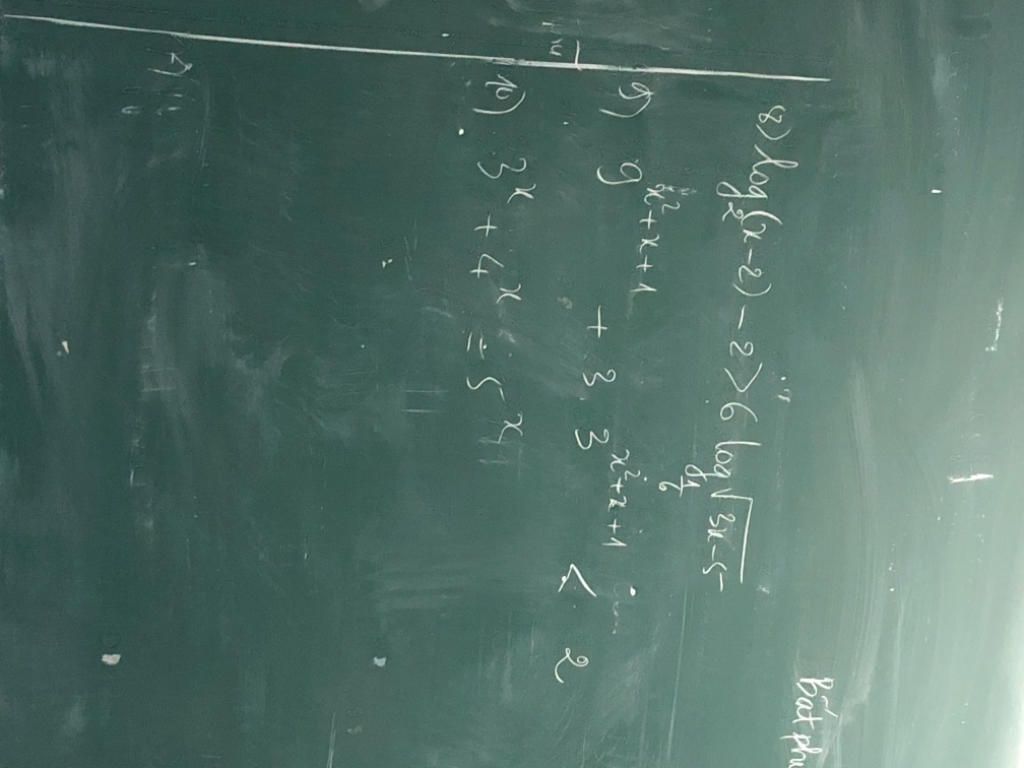 Bất
8) log₂(x-2) - 2 > 6 log_{1/6} √(3x-5)
9) 9^{x²+x+1} + 3 3^{x²+x+1} < 2
10) 3^x + 4^x = 5